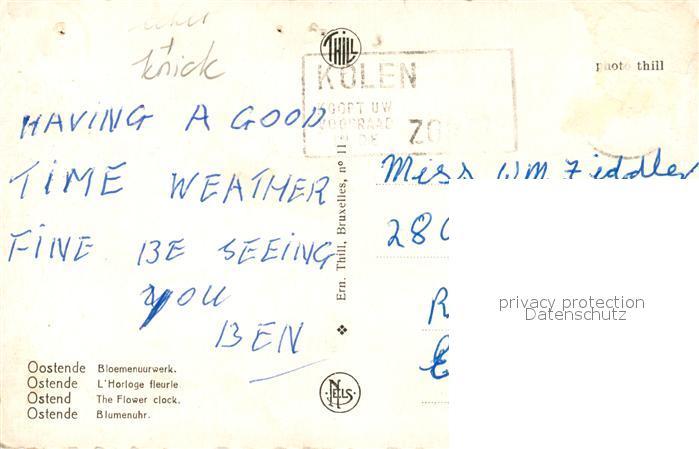 knick
THILL
KOLEN
KOOPT UW
VOORRAAD
photo thill
HAVING A GOOD
TIME WEATHER
FINE BE SEEING
YOU
BEN
Ern. Thill, Bruxelles, nº 11
Miss WM Fiddler
28
privacy protection
Datenschutz
Oostende Bloemenuurwerk.
Ostende L'Horloge fleurie
Ostend The Flower clock.
Ostende Blumenuhr.
NELS